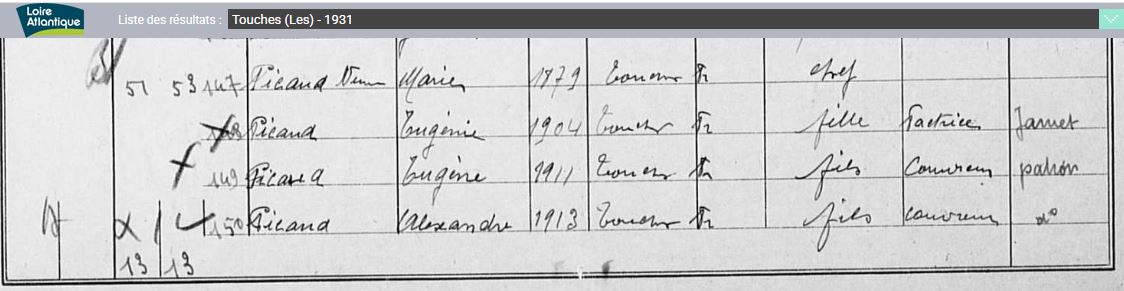 Loire Atlantique
Liste des résultats : Touches (Les) - 1931
51 53 147 Picaud Marie 1879 Touches fr chef
148 Picaud Eugénie 1904 Touches fr fille factrice Jamet
149 Picaud Eugène 1911 Touches fr fils Couvreur patron
150 Picaud Alexandre 1913 Touches fr fils couvreur do
13 13